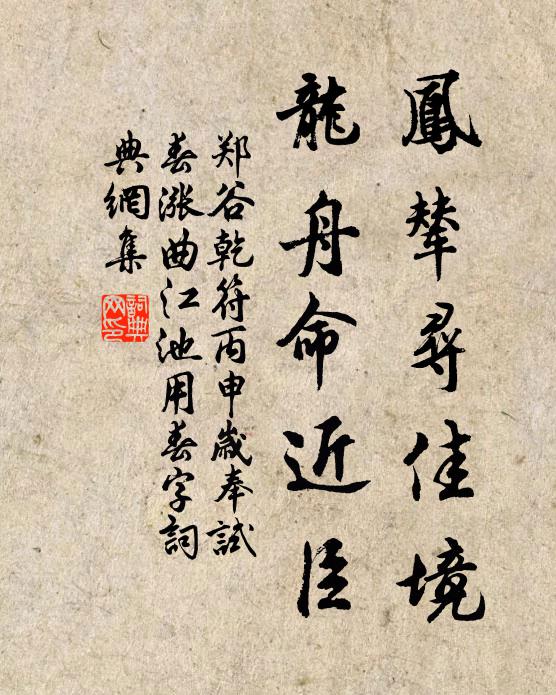 鳳輦尋佳境
龍舟命近臣
郑谷乾符丙申歲奉試
春涨曲江池用春字詞
典網集
詞典網印